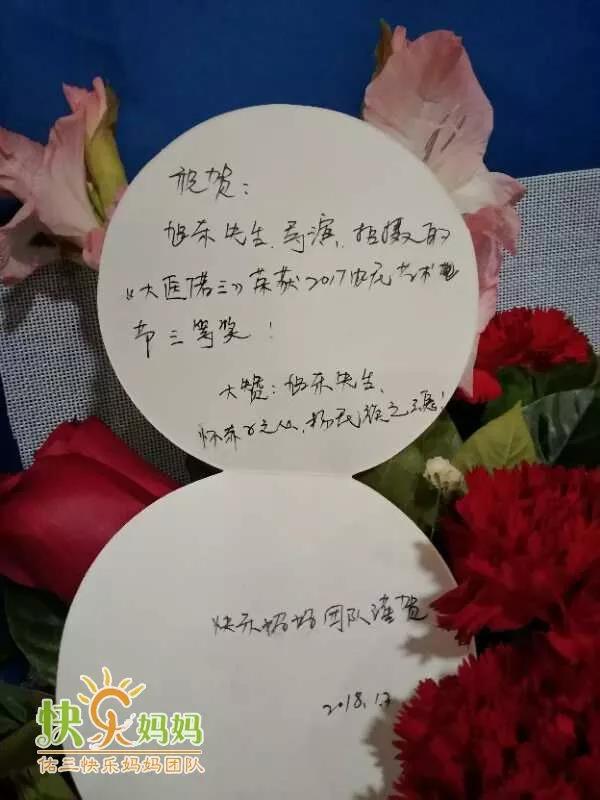 祝贺：
旭东先生导演、拍摄的
《大医倪三》荣获2017 艺术电
节三等奖！
大赞：旭东先生、
怀赤子之心，扬民族之
快乐妈妈团队谨贺
2018.1.7
快乐妈妈
佑三快乐妈妈团队